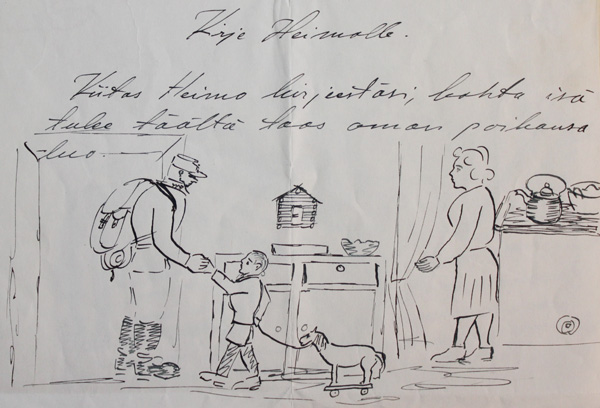 Kirje Heimolle.
Kiitos Heimo kirjeestäsi, kohta isä
tulee täältä taas oman poikansa
luo.